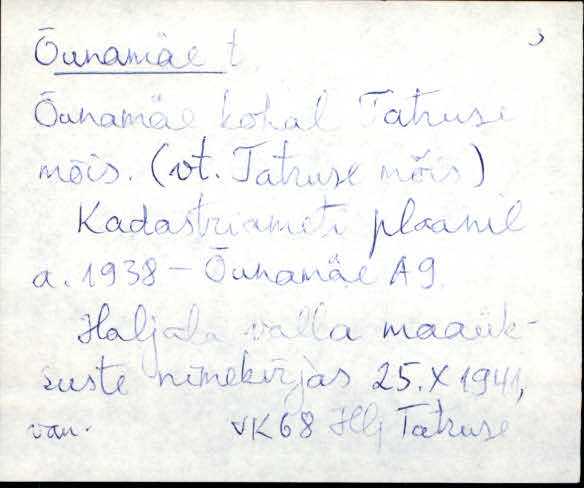 Õunamäe t.
Õunamäe kohal Tatruse
mõis. (vt. Tatruse mõis)
Kadastriameti plaanil
a. 1938 – Õunamäe A9.
Haljala valla maaük-
suste nimekirjas 25.X 1941,
van. VK68 Hlj Tatruse